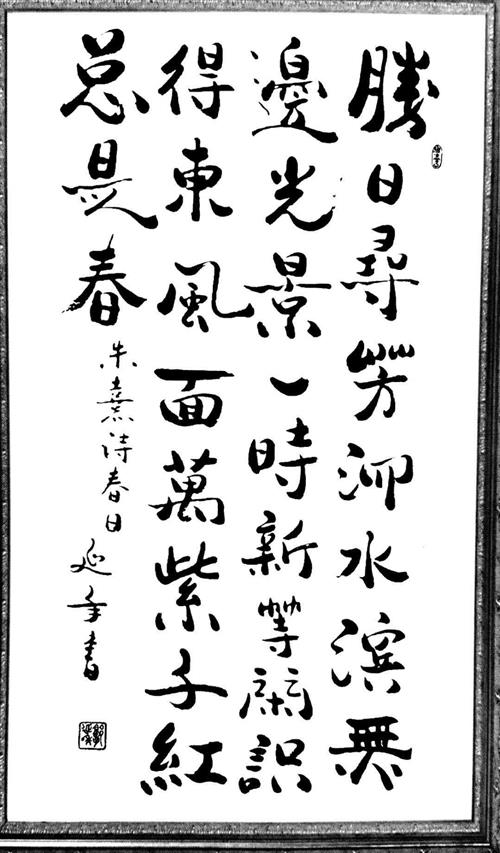 勝日尋芳泗水滨無
邊光景一時新等閑識
得東風面萬紫千紅
总是春
朱熹诗春日
延年書